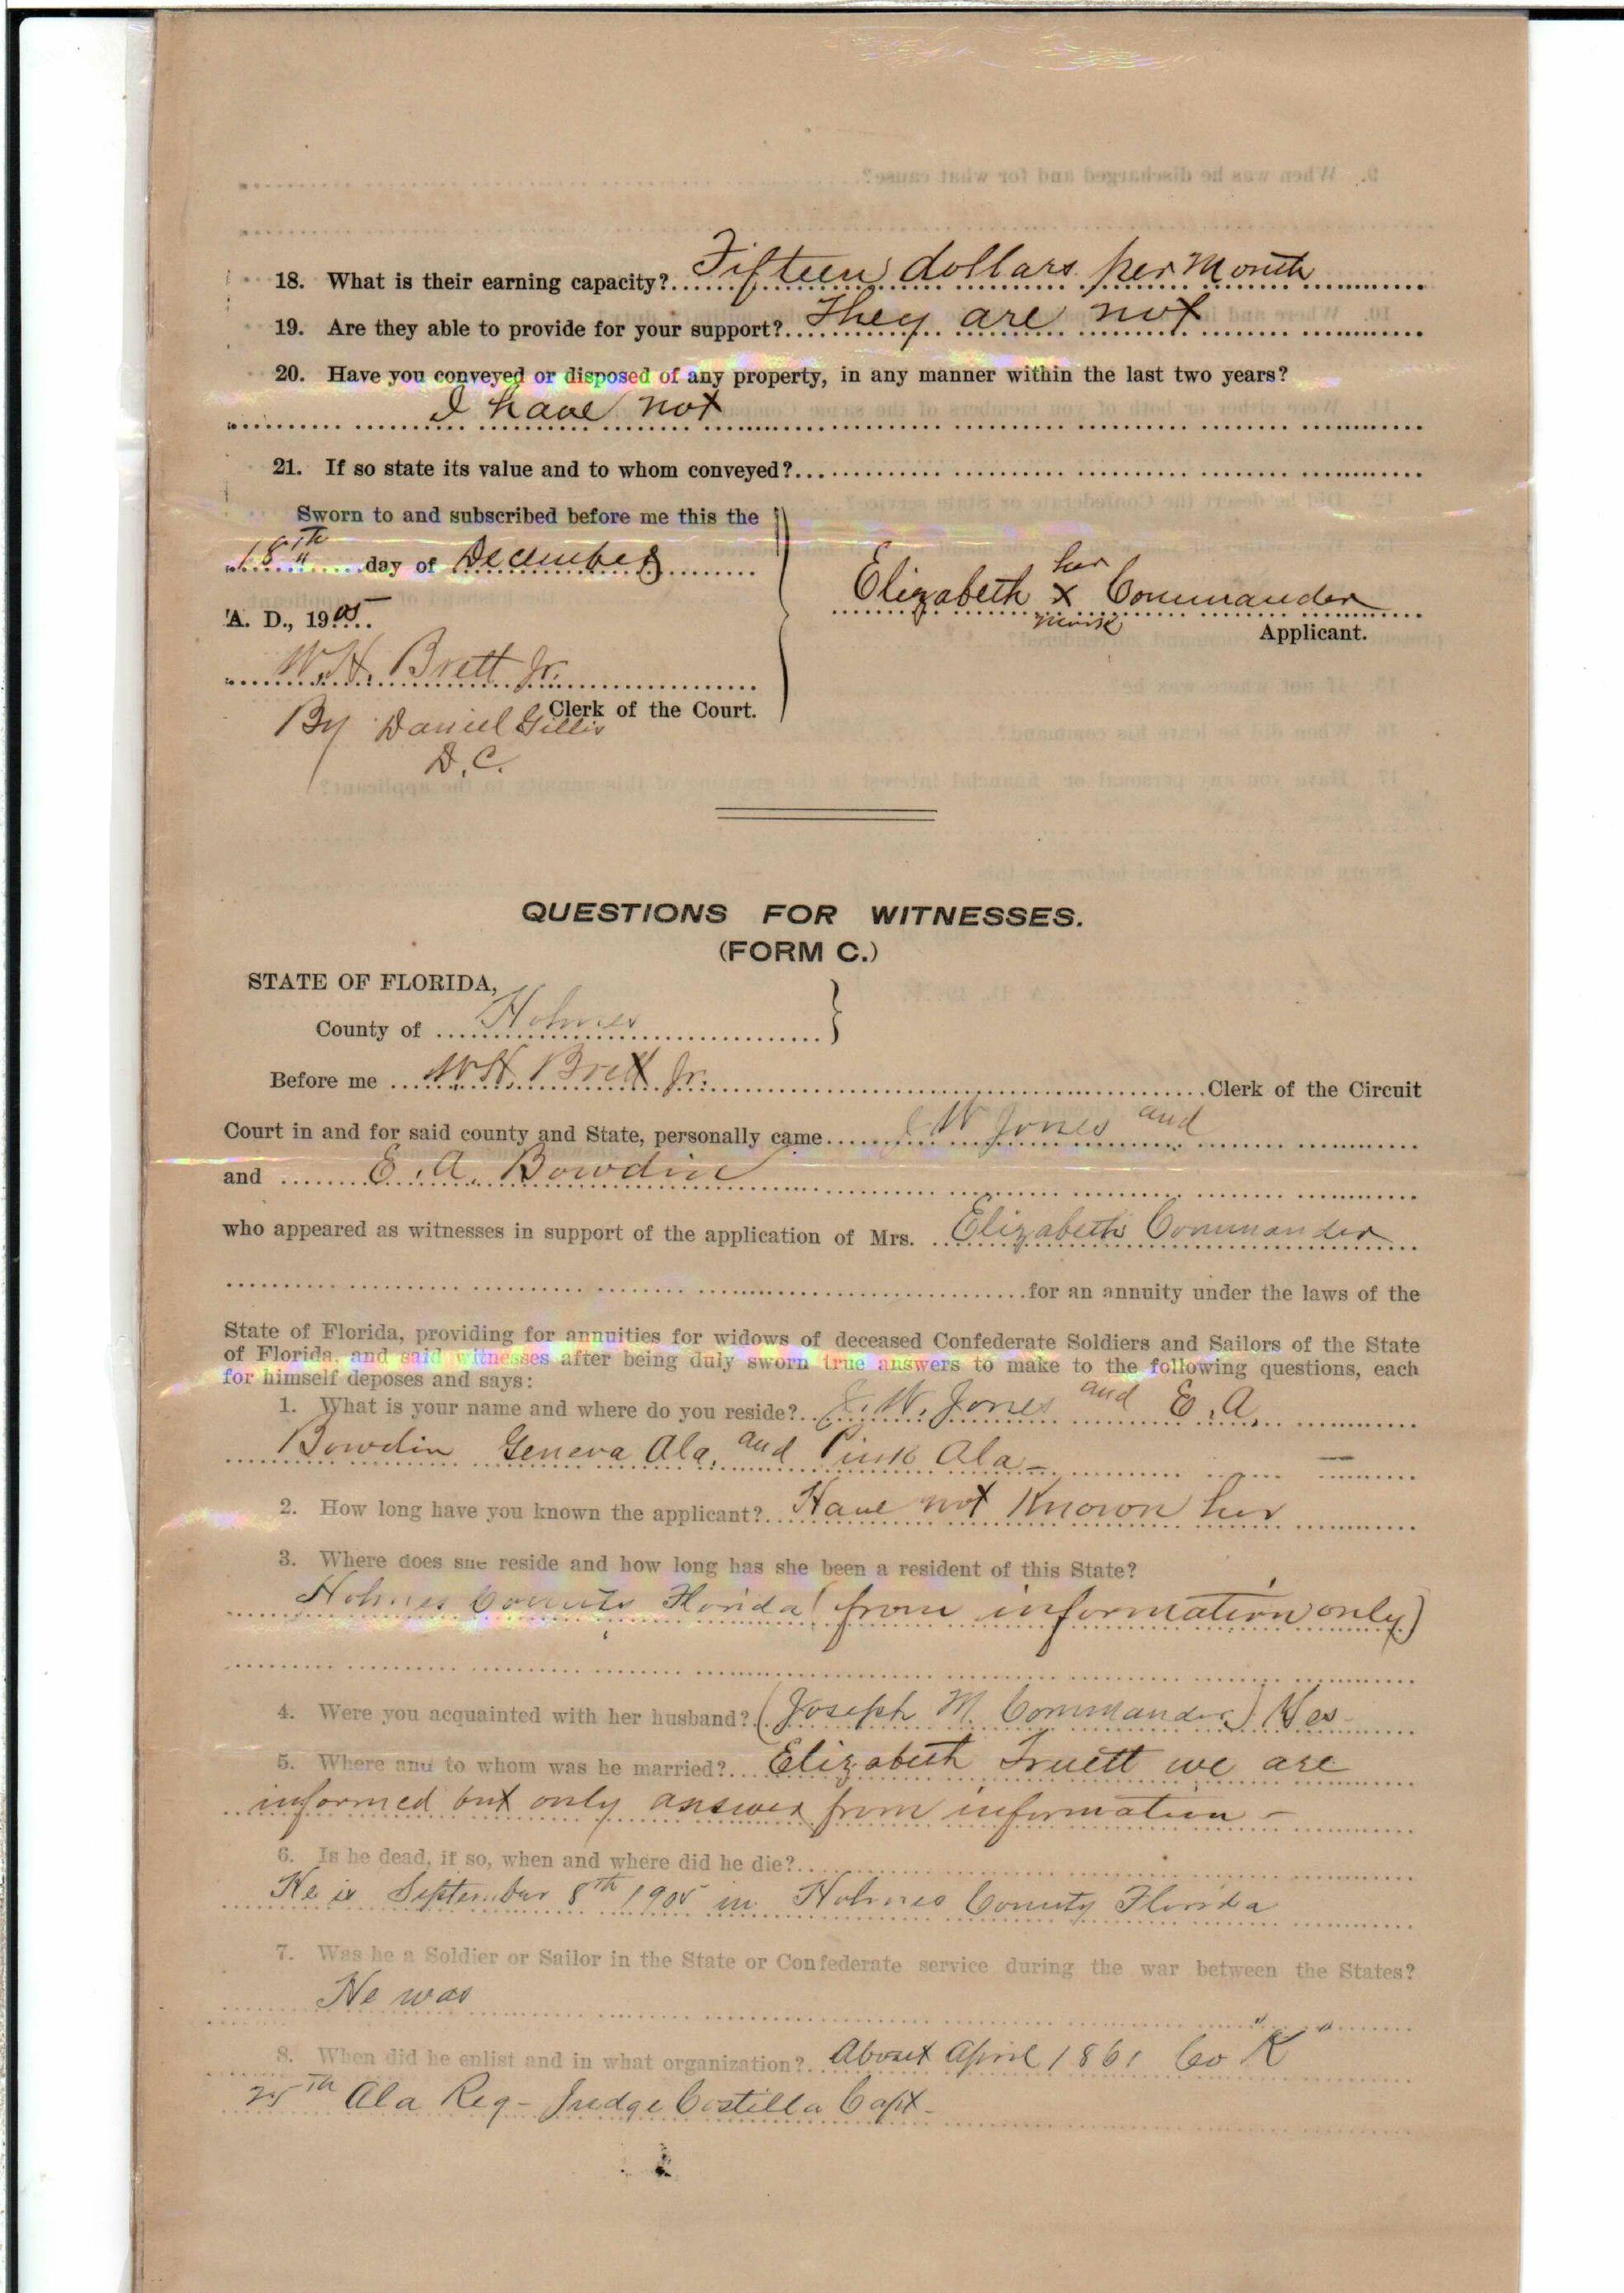 18. What is their earning capacity? Fifteen dollars per Month
19. Are they able to provide for your support? They are not
20. Have you conveyed or disposed of any property, in any manner within the last two years?
I have not
21. If so state its value and to whom conveyed?
Sworn to and subscribed before me this the
18th day of December
A. D., 1905
her
Elizabeth x Commander
mark
Applicant.
W.H. Brett Jr.
Clerk of the Court.
By Daniel Gillis
D.C.
QUESTIONS FOR WITNESSES.
(FORM C.)
STATE OF FLORIDA,
County of Holmes
Before me W.H. Brett Jr. Clerk of the Circuit
Court in and for said county and State, personally came J W Jones and
and E. A. Bowdin
who appeared as witnesses in support of the application of Mrs. Elizabeth Commander
for an annuity under the laws of the
State of Florida, providing for annuities for widows of deceased Confederate Soldiers and Sailors of the State
of Florida, and said witnesses after being duly sworn true answers to make to the following questions, each
for himself deposes and says:
1. What is your name and where do you reside? J. W. Jones and E. A.
Bowdin Geneva Ala. and Pink Ala-
2. How long have you known the applicant? Have not Known her
3. Where does she reside and how long has she been a resident of this State?
Holmes County Florida (from information only)
4. Were you acquainted with her husband? (Joseph M. Commander) Yes-
5. Where and to whom was he married? Elizabeth Truett we are
informed but only answer from information -
6. Is he dead, if so, when and where did he die?
He is September 8th 1905 in Holmes County Florida
7. Was he a Soldier or Sailor in the State or Confederate service during the war between the States?
He was
8. When did he enlist and in what organization? About April 1861 Co "K"
25th Ala Reg- Judge Costilla Capt-